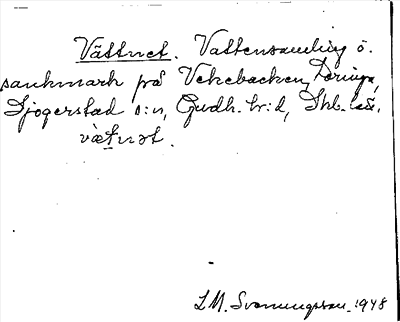 Vättnet. Vattensamling ö.
sankmark på Vekebacken,
Sjogerstad s:n, Gudh. hr:d, Skb. län.
vätnət.
L M. Svenungsson. 1948